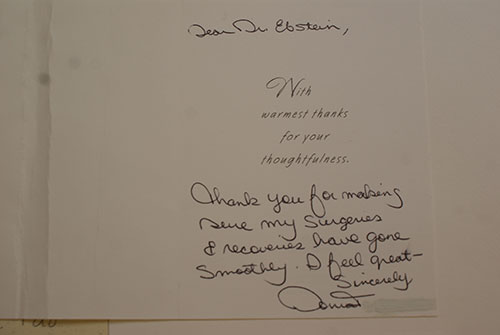 Dear Dr. Ebstein,
With
warmest thanks
for your
thoughtfulness.
Thank you for making
sure my surgeries
& recoveries have gone
smoothly. I feel great-
Sincerely